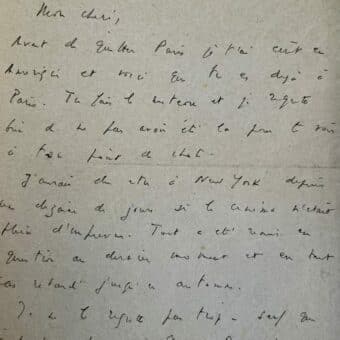 Mon chéri,
Avant de quitter Paris je t'ai écrit en
et voici que tu es déjà à
Paris. Tu fais le et je regrette
bien de ne pas avoir été là pour te voir
à ton de chat.
J'aurais dû être à New York depuis
une dizaine de jours si le cinéma n'était
plein d'imprévus. Tout a été remis en
question au dernier moment et en tout
cas retardé jusqu'à automne.
Je ne le regrette pas trop - sauf que